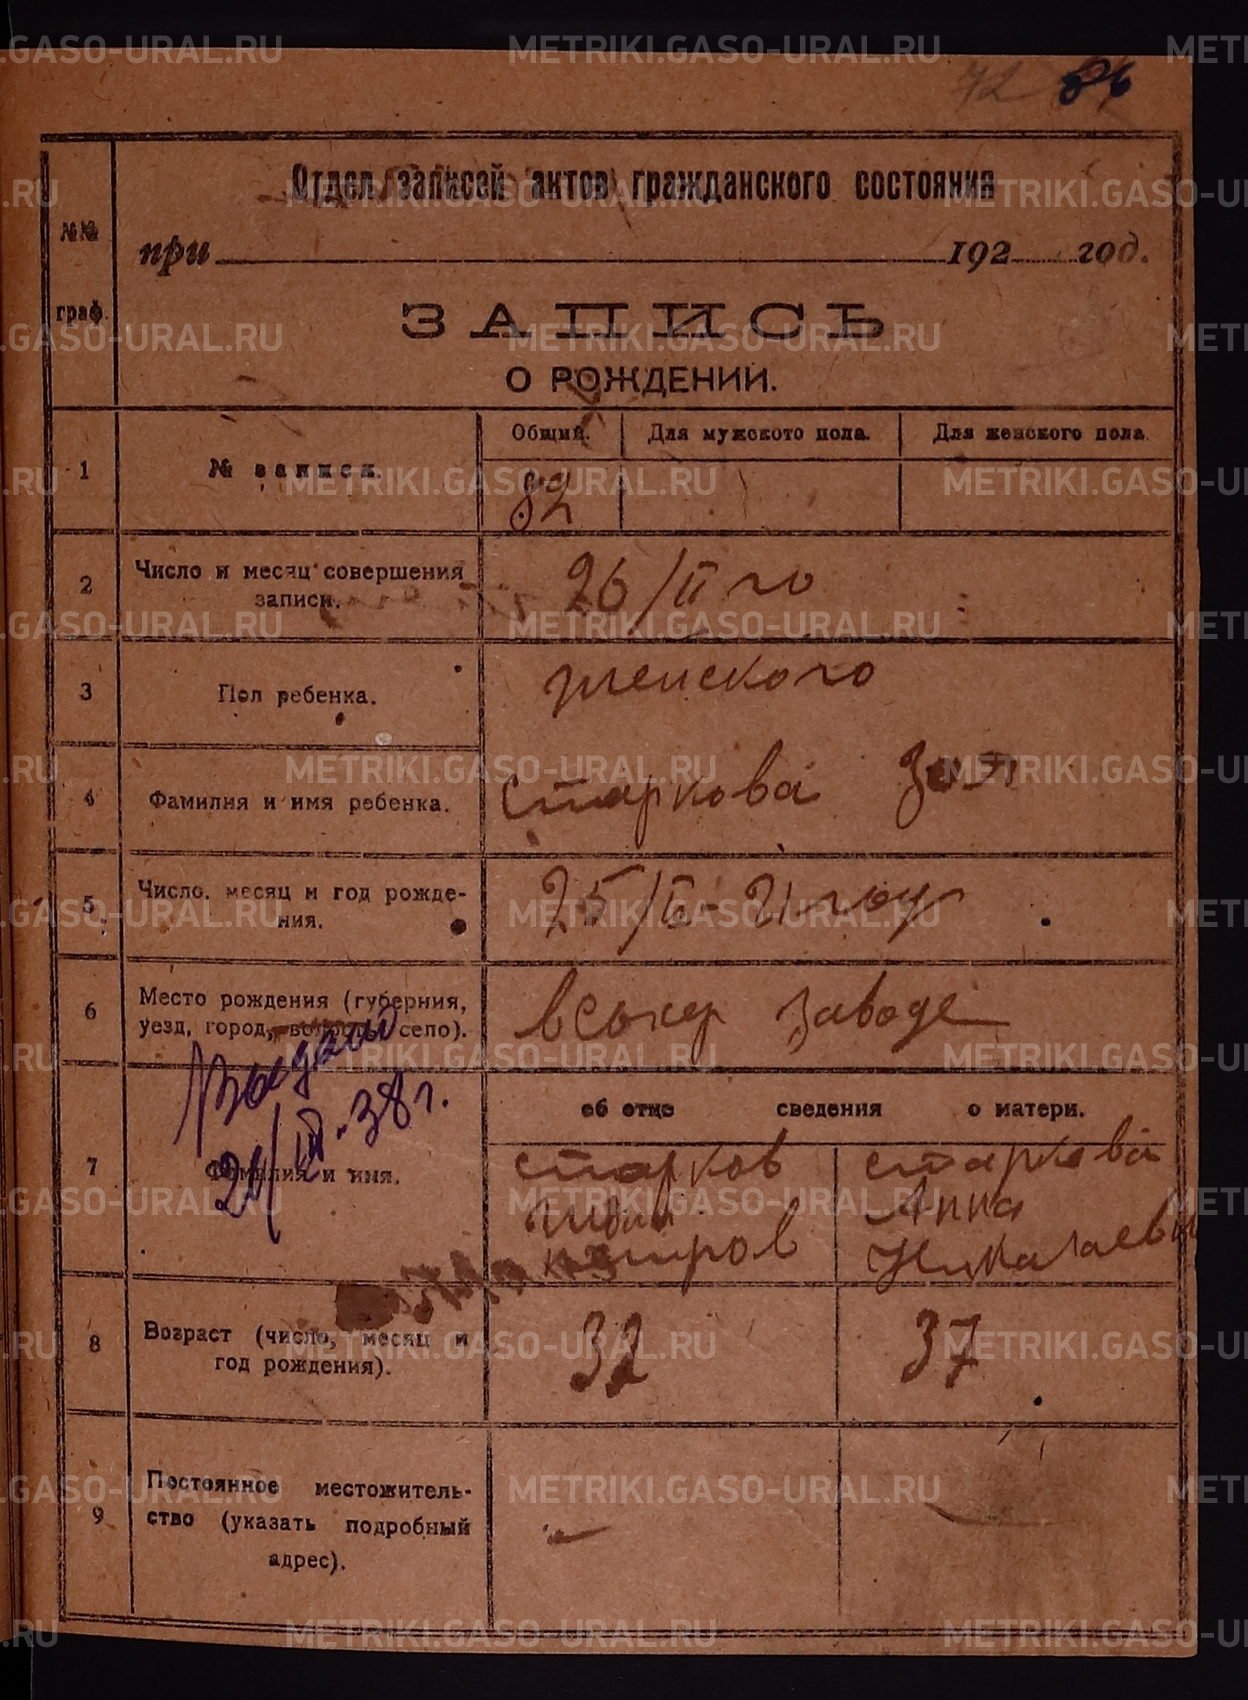 72 86
Отдел записей актов гражданского состояния
№№ граф.
при 192 год.
ЗАПИСЬ
О РОЖДЕНИИ.
1 № записи. Общий. Для мужского пола. Для женского пола.
82
2 Число и месяц совершения записи. 26/II го
3 Пол ребенка. женского
4 Фамилия и имя ребенка. Старкова Зоя
5 Число, месяц и год рождения. 25/II - 21 году
6 Место рождения (губерния,
уезд, город, волость, село). заводе
об отце сведения о матери.
7 Фамилия и имя.
Старков Старкова
Иван Анна
Николаевн
21/III-38 г.
8 Возраст (число, месяц и
год рождения). 32 37
9 Постоянное местожитель-
ство (указать подробный
адрес).
METRIKI.GASO-URAL.RU